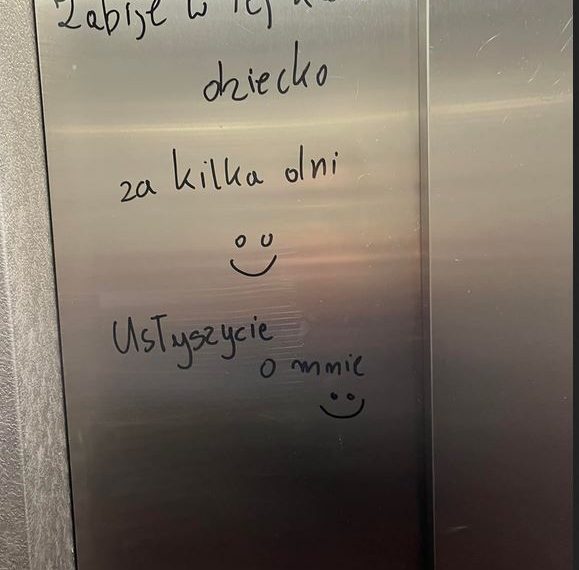 Zabiję w tej
dziecko
za kilka dni
Usłyszycie
o mnie